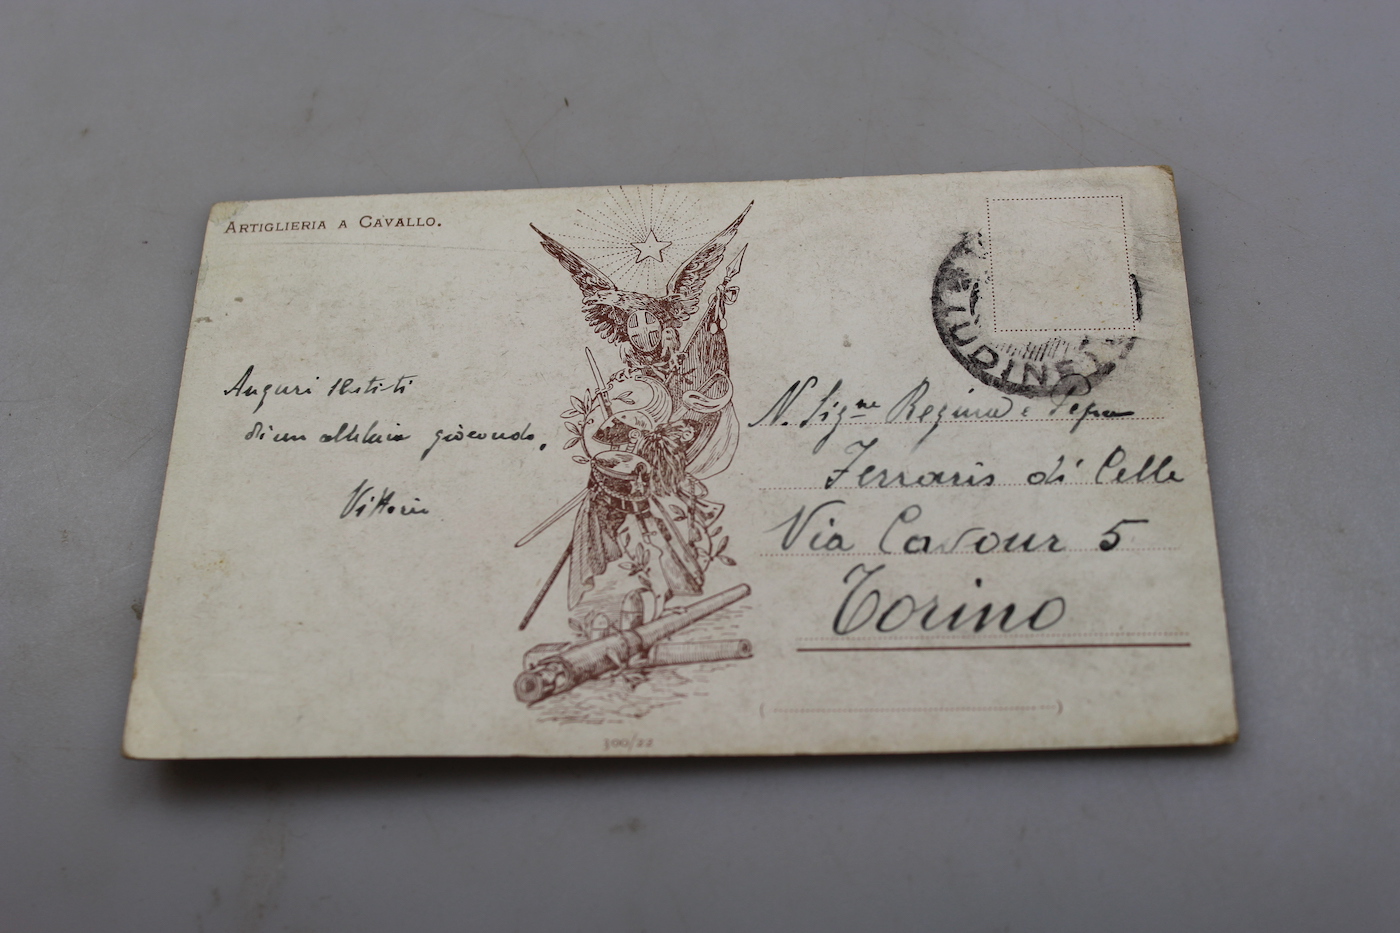 ARTIGLIERIA A CAVALLO.
UDINE
Auguri
di un alleluia giocondo,
Vittorio
N. Sig.ne Regina e Pepa
Ferraris di Celle
Via Cavour 5
Torino
( )
500/22